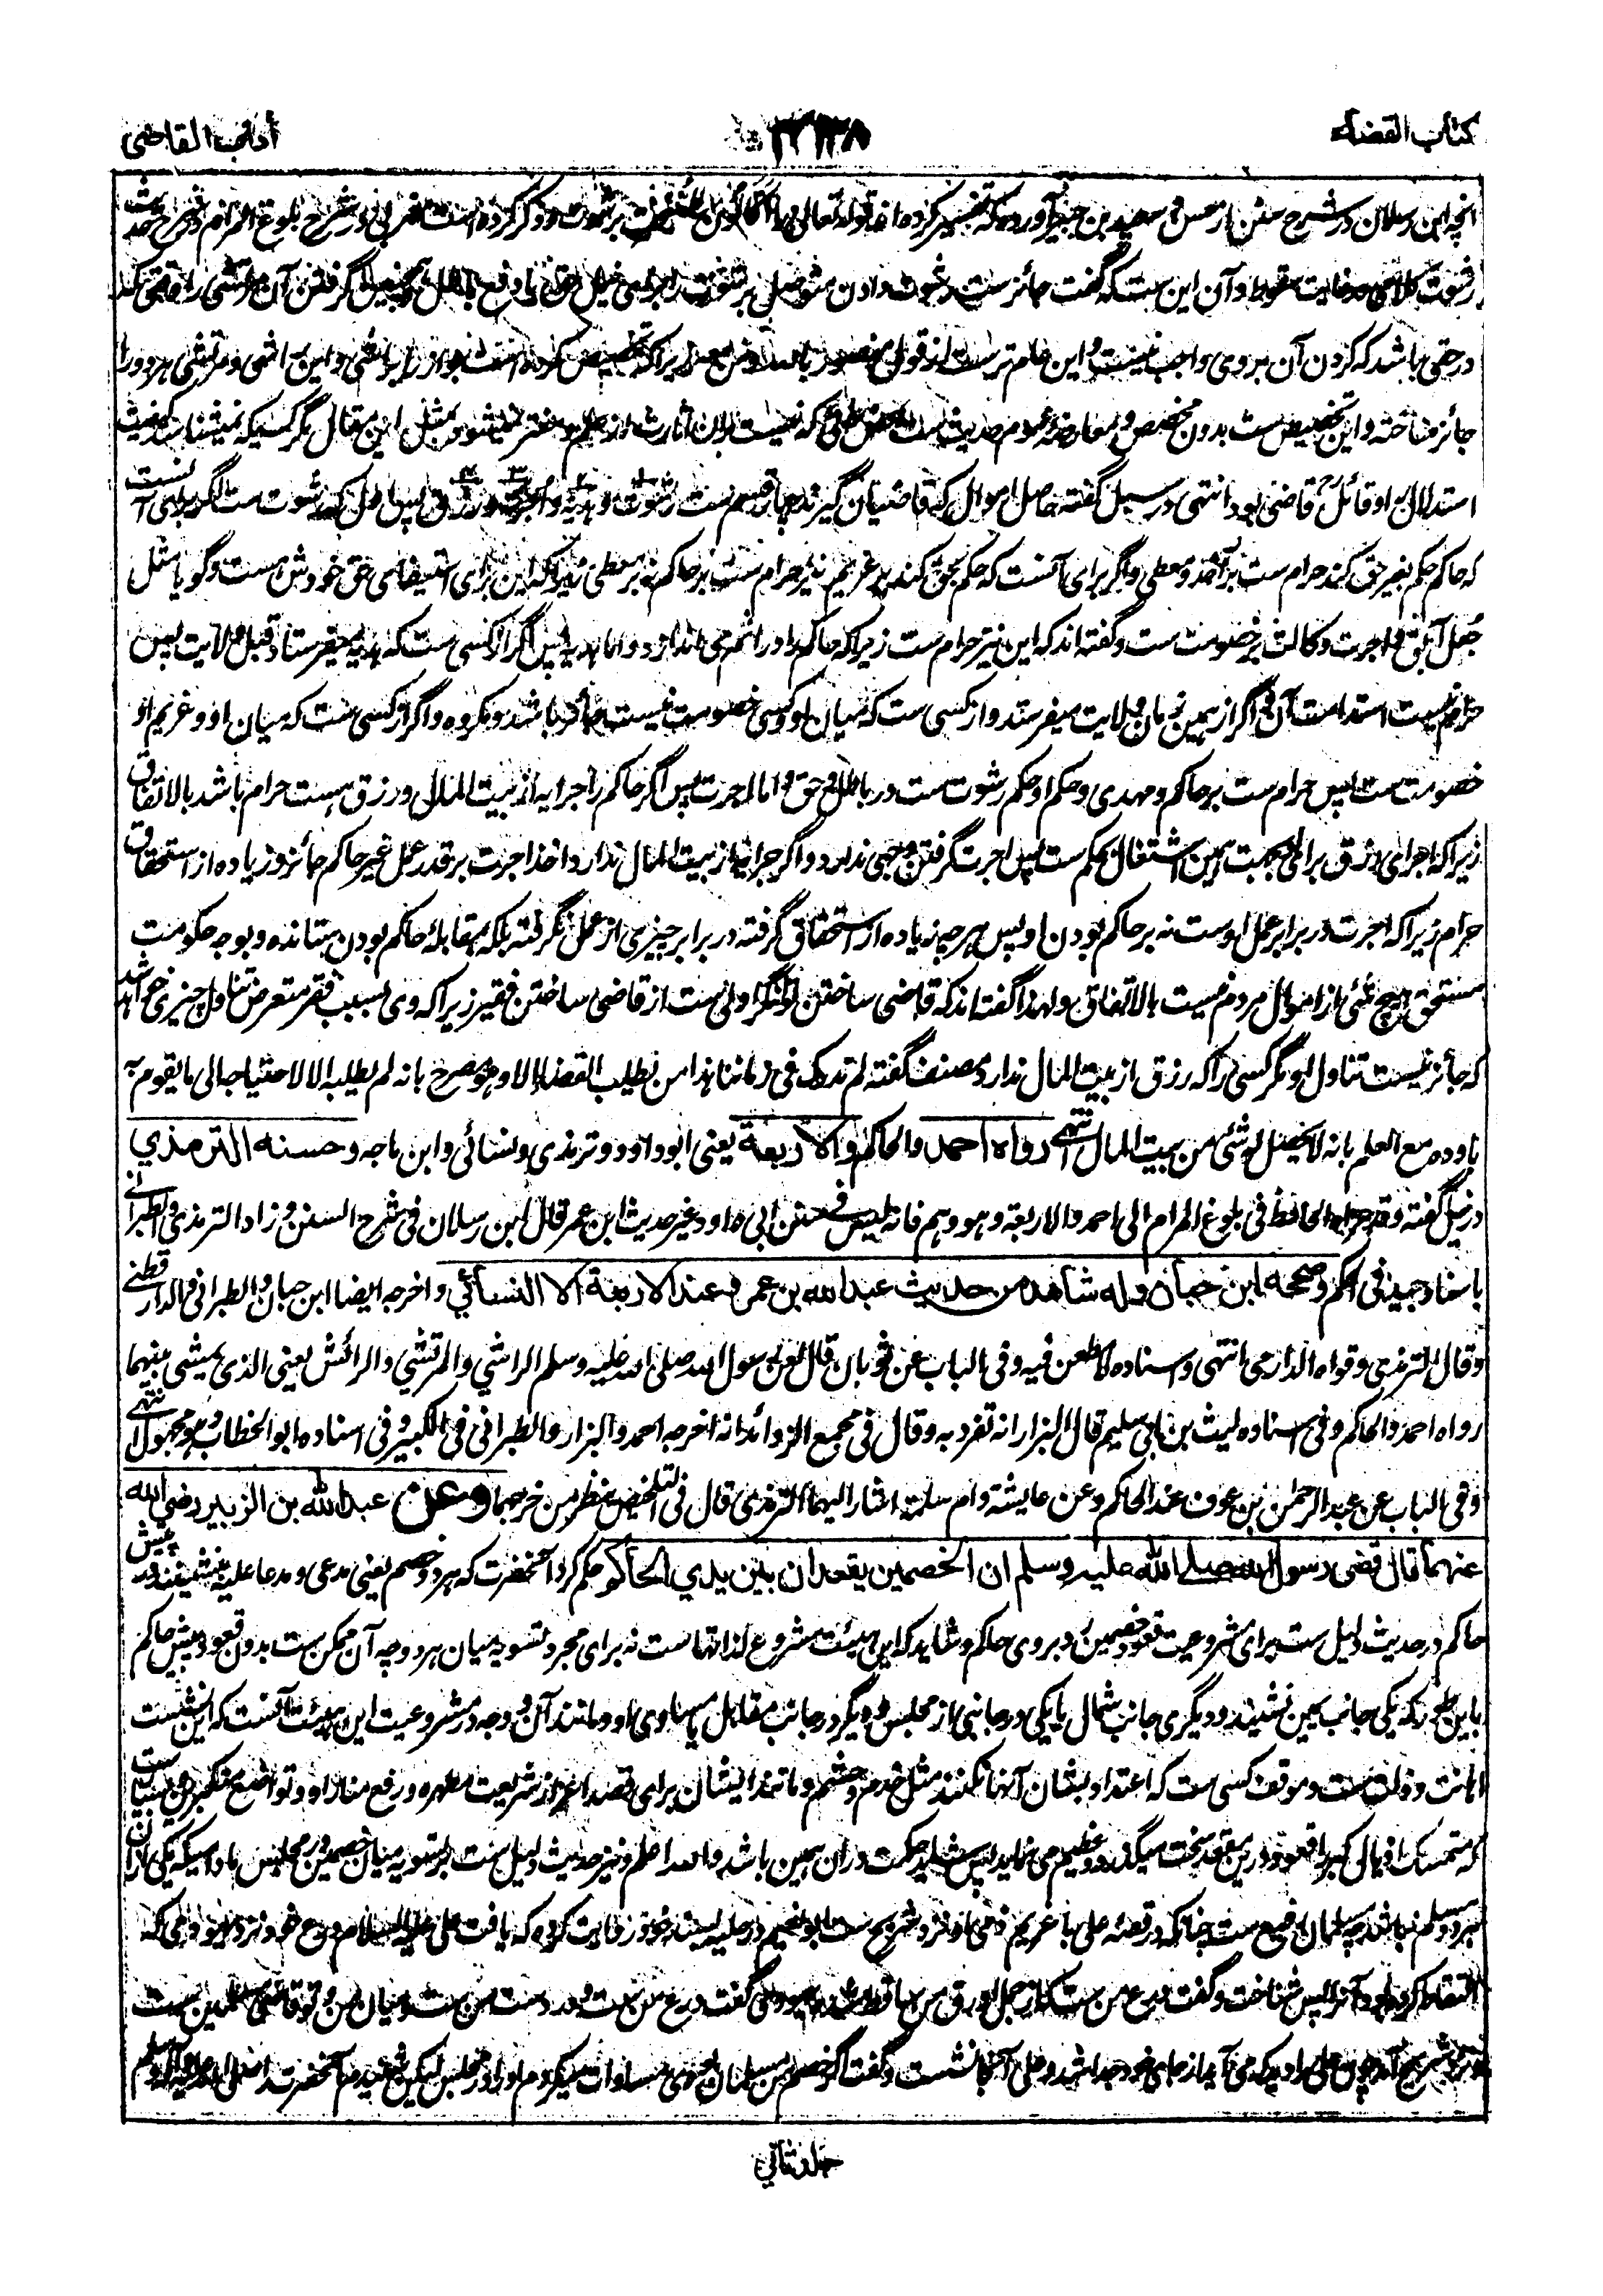 كتاب القضاء
أدب القاضي
انچه ابن رسلان در شرح سنن از حسن و سعید بن جبیر آورده که تفسیر کرده‌اند قوله تعالی را برشوت و ذکر کرده است مغربی در شرح بلوغ المرام در شرح حدیث
رشوت کلامی در غایت سقوط و آن این ست که گفت جائز ست رشوت دادن
در حقی باشد که کردن آن بروی واجب نیست و این عام تر ست از قول منصور بالله زیراکه تخصیص کرده است جواز را براشی و این راشی و مرتشی هر دو را
جائز ساخته و این تخصیص ست بدون مخصص و معارضه عموم حدیث ست که نیست بران اثارت از علم و مغتر نمیشود بمثل این مقال مگر کسیکه نمیشناسد کیفیت
استدلال و او قائل قاضی بود انتهی در سبل گفته حاصل اموال که قاضیان گیرند چهار قسم ست رشوت و هدیه و اجرت و رزق پس اول که رشوت ست اگر برای آنست
که حاکم حکم بغیر حق کند حرام ست بر آخذ و معطی و اگر برای آنست که حکم بحق کند بر غریم نیز حرام ست بر حاکم نه بر معطی زیراکه این برای استیفای حق خودش هست و گویا مثل
جعل آبق و اجرت وکالت بر خصومت ست و گفته اند که این نیز حرام ست زیراکه حاکم را در اثم می اندازد و اما هدیه پس اگر از کسی ست که هدیه میفرستاد قبل ولایت پس
حرام نیست استدامت آن و اگر از همین زمان ولایت میفرستد و از کسی ست که میان او و کسی خصومت نیست جائز باشد و مکروه و اگر از کسی ست که میان او و غریم او
خصومت ست پس حرام ست بر حاکم و مهدی و حکم او حکم رشوت ست در باطل و حق و اما اجرت پس اگر حاکم را جرایه از بیت المال و رزق هست حرام باشد بالاتفاق
زیراکه اجرای رزق برای وی بجهت همین اشتغال بحکم ست پس اجرت گرفتن وجهی ندارد و اگر جرایه از بیت المال ندارد اخذ اجرت بر قدر عمل غیر حاکم جائز و زیاده از استحقاق
حرام زیراکه اجرت در برابر عمل اوست نه بر حاکم بودن او پس هرچه زیاده از استحقاق گرفته در برابر چیزی از عمل نگرفته بلکه بمقابلهٔ حاکم بودن ستانده و بوجه حکومت
مستحق هیچ شئی از اموال مردم نیست بالاتفاق و لهذا گفته اند که قاضی ساختن توانگر اولی ست از قاضی ساختن فقیر زیراکه وی بسبب فقر متعرض تناول چیزی خواهد شد
که جائز نیست تناول او مگر کسی را که رزق از بیت المال ندارد مصنف گفته لم ندرک فی زماننا هذا من یطلب القضاء الا و هو مصرح بانه لم یطلبه الا لاحتیاجه الی ما یقوم به
باوده مع العلم بانه لا یحصل له شئ من بیت المال انتهی رواه احمد والحاکم والاربعة یعنی ابوداود و ترمذی و نسائی و ابن ماجه وحسنه الترمذي
در نیل گفته و قد عزاه الحافظ فی بلوغ المرام الی احمد والاربعة وهو وهم فانه لیس فی سنن ابی داود غیر حدیث ابن عمر قال ابن رسلان فی شرح السنن و زاد الترمذی والطبرانی
باسناد جید فی الحکم وصححه ابن حبان وله شاهد من حدیث عبدالله بن عمرو عند الاربعة الا النسائي و اخرجه ایضا ابن حبان و الطبرانی والدارقطنی
وقال الترمذی وقواه الدارمی انتهی و اسناده لا طعن فیه و فی الباب عن ثوبان قال لعن رسول الله صلی الله علیه وسلم الراشي والمرتشي والرائش یعنی الذی یمشی بینهما
رواه احمد والحاکم و فی اسناده لیث بن ابی سلیم قال البزار انه تفرد به وقال فی مجمع الزوائد انه اخرجه احمد والبزار والطبرانی فی الکبیر و فی اسناده ابو الخطاب و هو مجهول انتهی
و فی الباب عن عبد الرحمن بن عوف عند الحاکم و عن عایشة وام سلمة اشار الیهما الترمذی قال فی التلخیص ینظر من خرجهما وعن عبدالله بن الزبیر رضي الله
عنهما قال قضی رسول الله صلی الله علیه وسلم ان الخصمین یقعدان بین یدي الحاکم حکم کرد آنحضرت که هر دو خصم یعنی مدعی و مدعا علیه بنشینند در پیش
حاکم در حدیث دلیل ست برای مشروعیت قعود خصمین روبروی حاکم و شاید که این هیئت مشروع لذاتهاست نه برای مجرد تسویه میان هر دو چه آن ممکن ست بدون قعود پیش حاکم
باین طور که یکی جانب یمین نشیند و دیگری جانب شمال یا یکی در جانبی از مجلس و دیگر در جانب مقابل یا مساوی او و مانند آن و وجه در مشروعیت این هیئت آنست که این نشست
اهانت و ذلت ست و موقف کسی ست که اعتداد بشان آنها نکنند مثل خدم و حشم و مانند ایشان برای قصد اعزاز شریعت مطهره و رفع منار او و تواضع متکبرین ست
که متمسک اذیال کبر را قعود درین مقعد سخت میگذرد و عظیم می نماید پس شاید حکمت دران همین باشد والله اعلم و نیز حدیث دلیل ست بر تسویه میان خصمین در مجلس مادامیکه یکی ازان
هر دو مسلم نباشد چه مسلمان ارفع ست چنانکه در قصهٔ علی با غریم ذمی او نزد شریح ست ابونعیم در حلیه بسند خود روایت کرده که یافت علی علیه السلام درع خود نزد یهودی که
التقاط کرده بود آنرا پس شناخت و گفت درع من ست که از جمل اورق من ساقط شده یهودی گفت درع من ست و در دست من ست و میان من و تو قاضی مسلمین ست
نزد شریح آمد چون علی را دید که می آید از جای خود جدا شد و علی آنجا نشست و گفت اگر خصم من مسلمان بودی مساوات میکردم او را در مجلس لیکن شنیدم آنحضرت را صلی الله علیه وآله وسلم
جلد ثاني